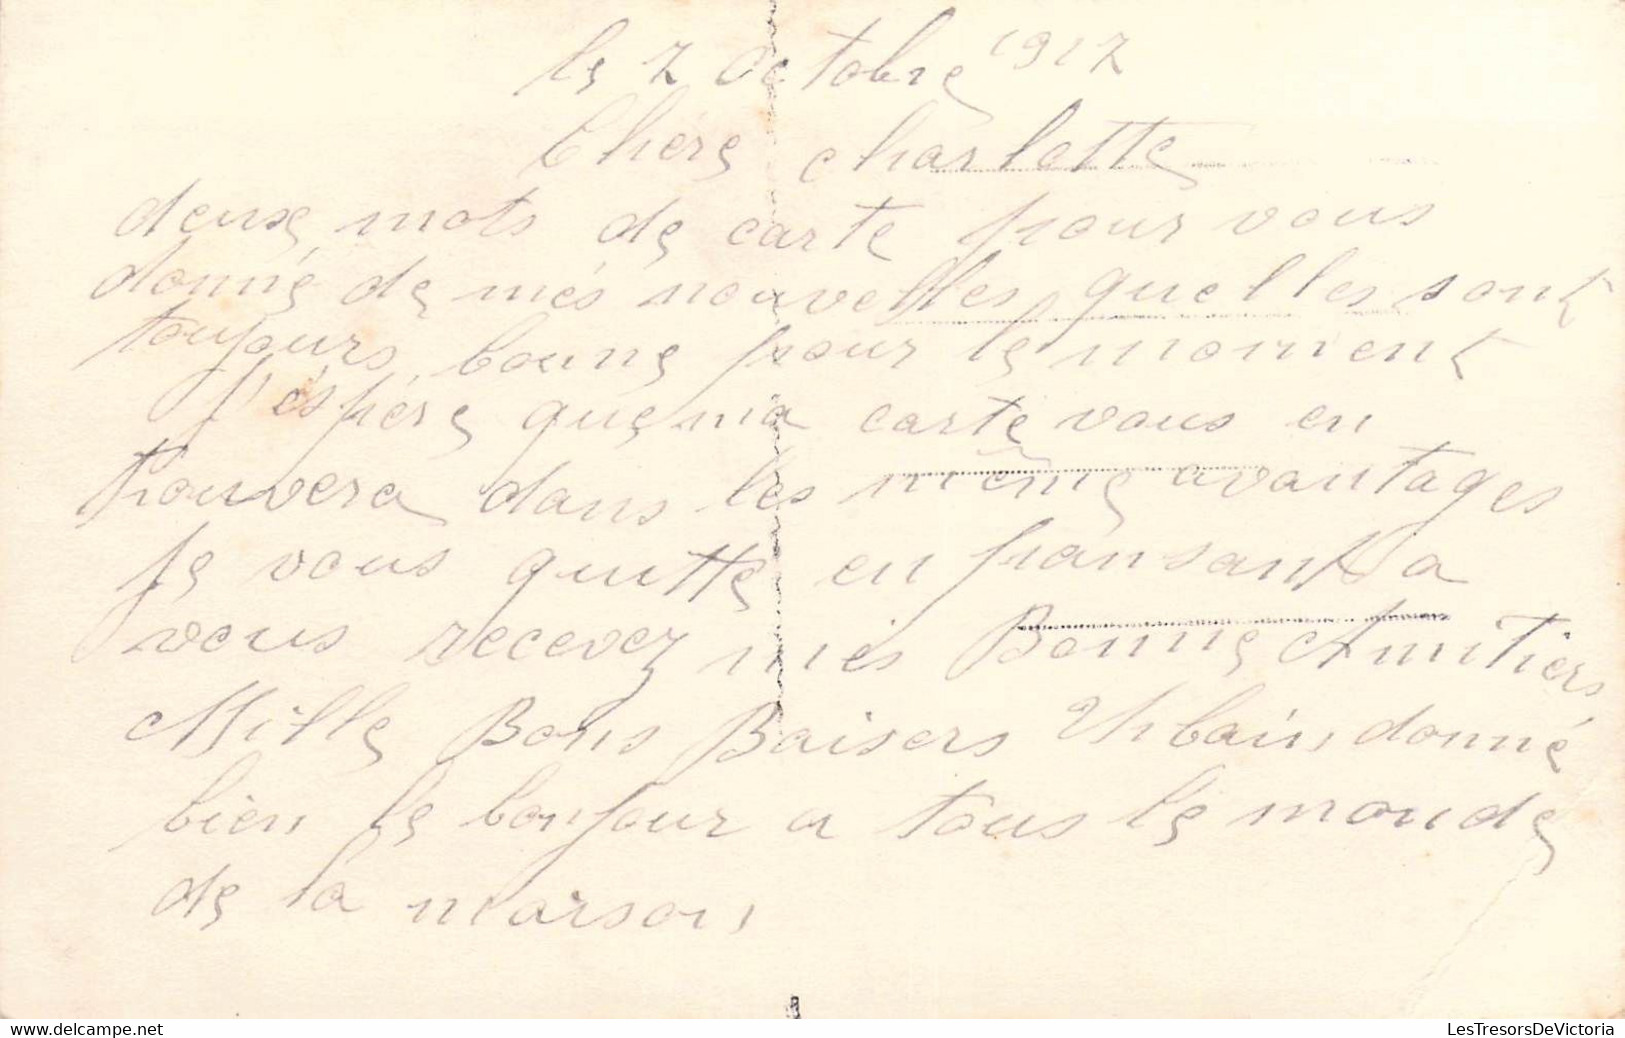 le 7 octobre 1917
Chere charlotte
deux mots de carte pour vous
donné de més nouvelles quelles sont
toujours bonne pour le moment
j'éspére que ma carte vous en
trouvera dans les même avantages
je vous quitte en pansant a
vous recevez més Bonne Amitiers
Mille Bons Baisers Urbain donné
bien le bonjour a tous le monde
de la maison
www.delcampe.net
LesTresorsDeVictoria